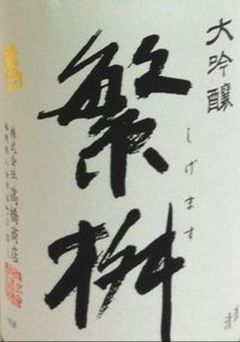 大吟醸
繁桝
しげます
株式会社 高橋商店